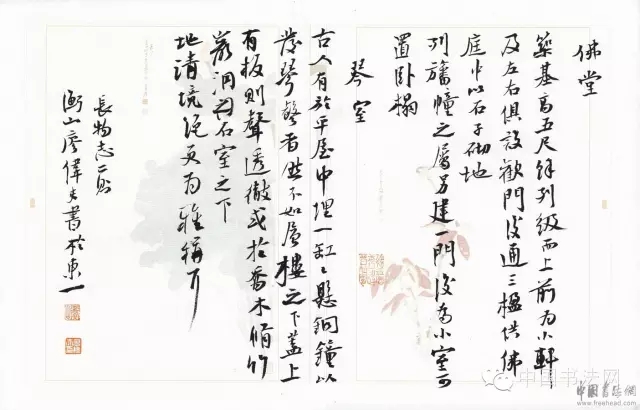 佛堂
築基高五尺餘列級而上前为小軒
及左右俱設歡門後通三楹供佛
庭中以石子砌地
列旛幢之屬另建一門後为小室可
置卧榻
琴室
古人有於平屋中埋一缸〻懸銅鐘以
發琴聲者然不如層樓之下蓋上
有板則聲透徹或於喬木脩竹
岩洞石室之下
地清境絕更为雅稱耳
長物志二則
衡山廖偉夫書於東一
中国书法网
中國書法網
www.freehead.com